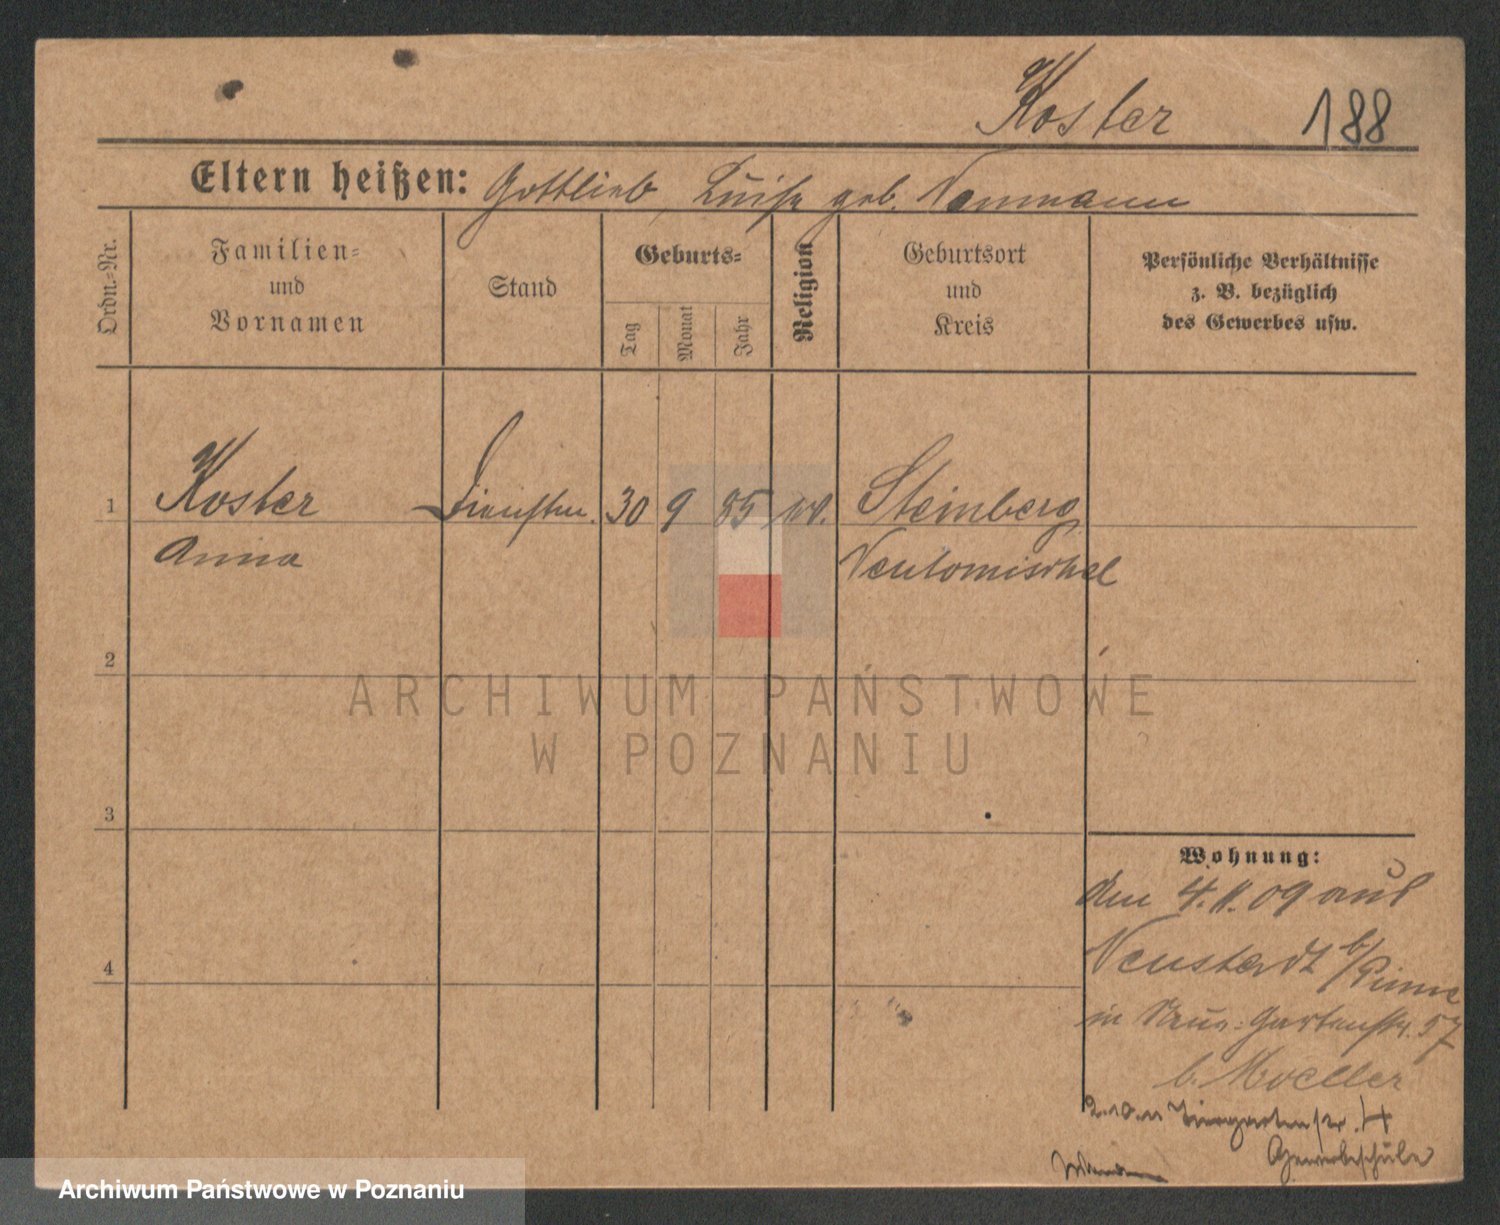 Koster 188
Eltern heißen: Gottlieb, Luise geb. Neumann
Ordn.-Nr.
Familien-
und
Vornamen
Stand
Geburts-
Tag
Monat
Jahr
Religion
Geburtsort
und
Kreis
Persönliche Verhältnisse
z. B. bezüglich
des Gewerbes usw.
1 Koster 30 9 85 Steinberg
Anna Neutomischel
2
3
4
Wohnung:
den 4. 11. 09 aus
Neustadt b/Pinne
in Gartenstr. 57
b. Moeller
2.10.11 Tiergartenstr. 4
Gewerbeschule
ARCHIWUM PAŃSTWOWE
W POZNANIU
Archiwum Państwowe w Poznaniu